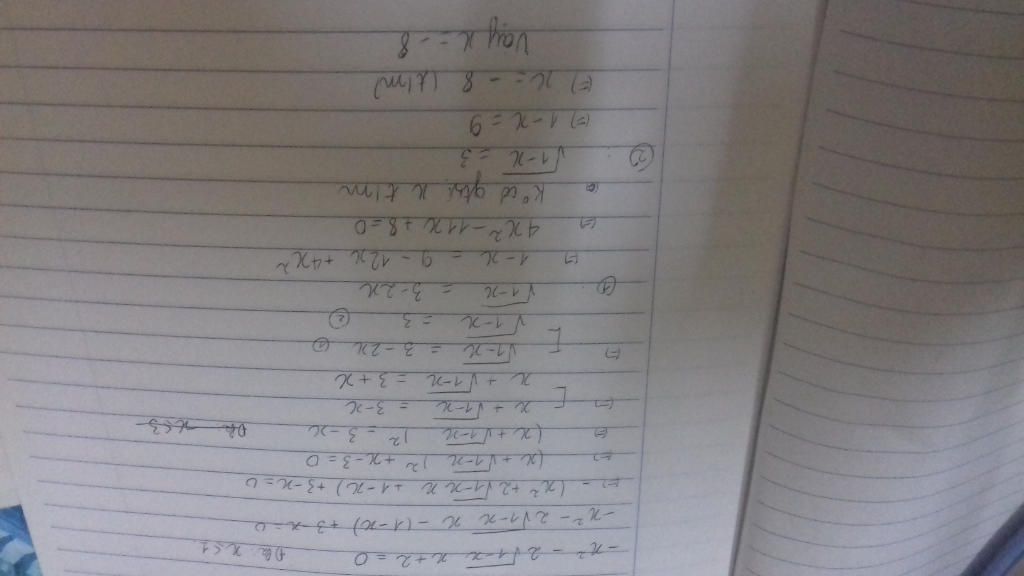 -x² - 2√1-x x + 2 = 0 Đk x ≤ 1
-x² - 2√1-x x - (1-x) + 3 - x = 0
(=) - (x² + 2√1-x x + 1-x) + 3-x = 0
(=) (x + √1-x )² + x - 3 = 0
(=) (x + √1-x )² = 3 - x Đk x ≤ 3
(=) [ x + √1-x = 3-x
x + √1-x = 3 + x
(=) [ √1-x = 3 - 2x ①
√1-x = 3 ②
① √1-x = 3-2x
(=) 1-x = 9 - 12x + 4x²
(=) 4x² - 11x + 8 = 0
(=) K° có gtrị x t/m
② √1-x = 3
(=) 1-x = 9
(=) x = -8 (t/m)
Vậy x = -8